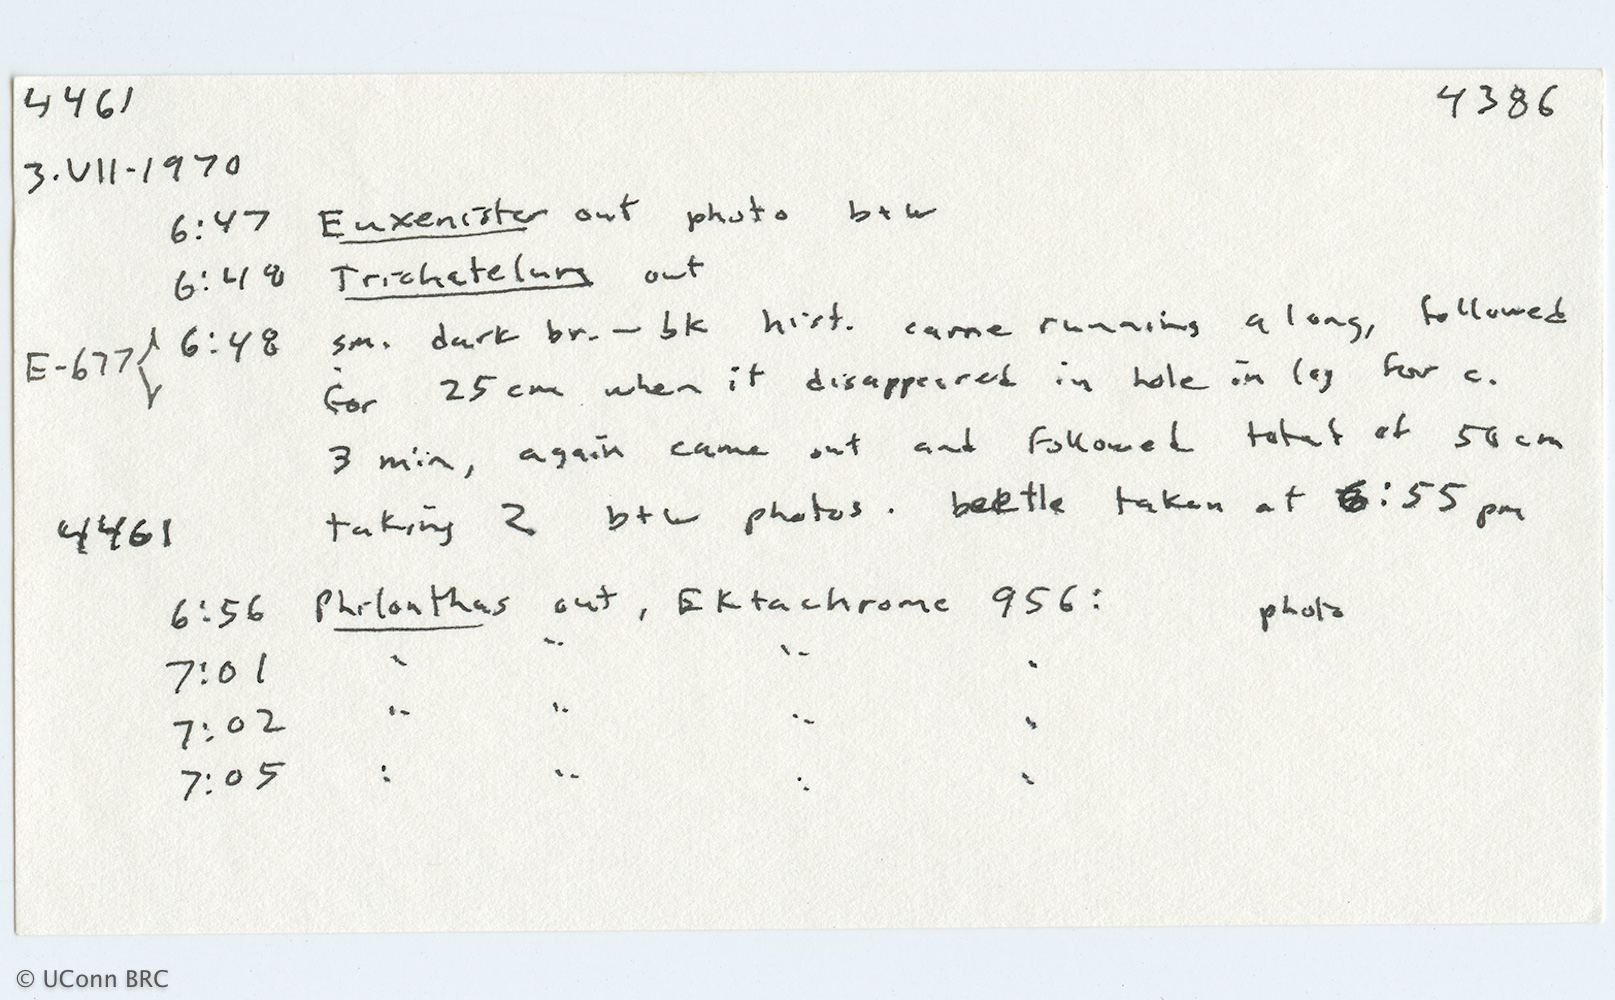 4461 4386
3.VII-1970
6:47 Euxenister out photo b+w
6:48 Trichatelura out
E-677 6:48 sm. dark br. - bk hist. came running along, followed
for 25 cm when it disappeared in hole in log for c.
3 min, again came out and followed total of 50 cm
4461 taking 2 b+w photos. beetle taken at 6:55 pm
6:56 Philonthus out, Ektachrome 956: photo
7:01 " " " "
7:02 " " " "
7:05 " " " "
© UConn BRC